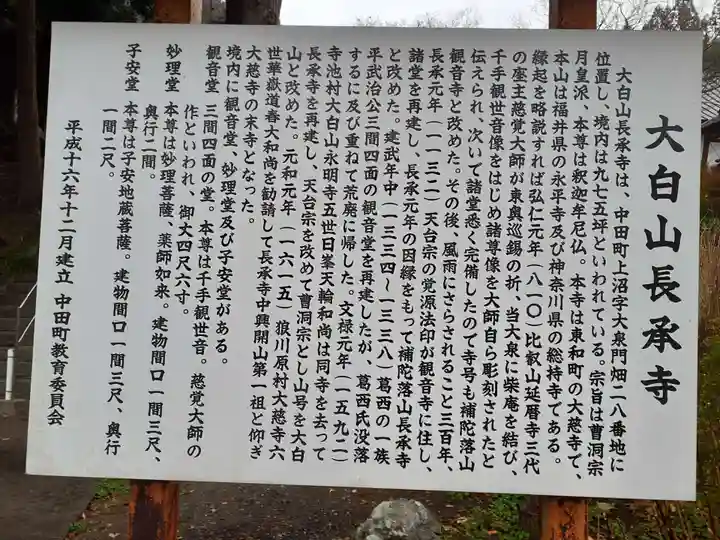 大白山長承寺
大白山長承寺は、中田町上沼字大泉門畑二八番地に
位置し、境内は九七五坪といわれている。宗旨は曹洞宗
月皇派、本尊は釈迦牟尼仏。本寺は東和町の大慈寺で、
本山は福井県の永平寺及び神奈川県の総持寺である。
縁起を略説すれば弘仁元年（八一〇）比叡山延暦寺三代
の座主慈覚大師が東奥巡錫の折、当大泉に柴庵を結び、
千手観世音像をはじめ諸尊像を大師自ら彫刻されたと
伝えられ、次いで諸堂悉く完備したので寺号も補陀落山
観音寺と改めた。その後、風雨にさらされること三百年、
長承元年（一一三二）天台宗の覚源法印が観音寺に住し、
諸堂を再建し、長承元年の因縁をもって補陀落山長承寺
と改めた。建武年中（一三三四～一三三八）葛西の一族
平武治公三間四面の観音堂を再建したが、葛西氏没落
するに及び重ねて荒廃に帰した。文禄元年（一五九二）
寺池村大白山永明寺五世日峯天輪和尚は同寺を去って
長承寺を再建し、天台宗を改めて曹洞宗とし山号を大白
山と改めた。元和元年（一六一五）狼川原村大慈寺六
世華嶽道春大和尚を勧請して長承寺中興開山第一祖と仰ぎ
大慈寺の末寺となった。
境内に観音堂、妙理堂及び子安堂がある。
観音堂 三間四面の堂。本尊は千手観世音。慈覚大師の
作といわれ、御丈四尺六寸。
妙理堂 本尊は妙理菩薩、薬師如来。建物間口一間三尺、
奥行二間。
子安堂 本尊は子安地蔵菩薩。建物間口一間三尺、奥行
一間二尺。
平成十六年十二月建立 中田町教育委員会